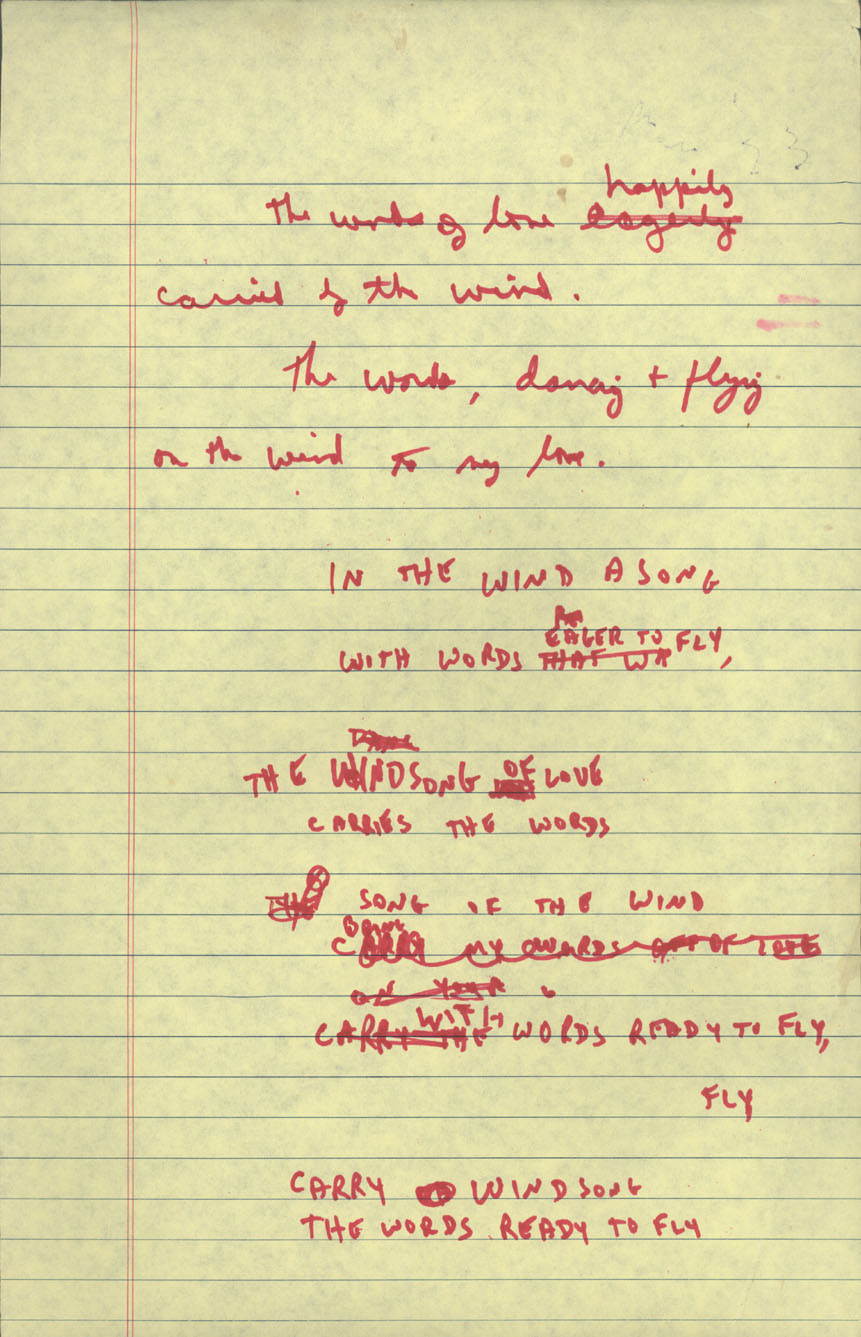 happily
The words of love eagerly
carried by the wind.
The words, dancing + flying
on the wind to my love.
IN THE WIND A SONG
EAGER TO FLY,
WITH WORDS THAT WA
THE WINDSONG OF LOVE
CARRIES THE WORDS
THE SONG OF THE WIND
CARRY MY WORDS OF LOVE
ON YOUR
WITH
CARRY THE WORDS READY TO FLY,
FLY
CARRY WINDSONG
THE WORDS READY TO FLY